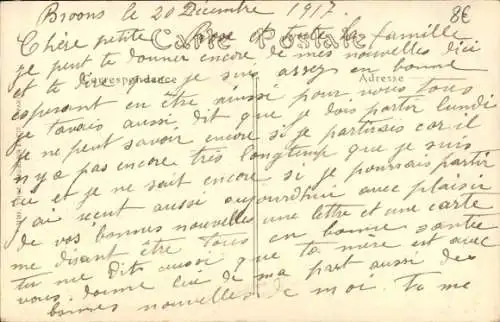 Broons le 20 Décembre 1917. 8€
Carte Postale
Correspondance
Adresse
Chère petite Rose et toute la famille
je peut te donner encore de mes nouvelles d'ici
et te dire que je suis assez en bonne
esperant en être aussi pour vous tous
je t'avais aussi dit que je dois partir lundi
je ne peut savoir encore si je partirais car il
n'y a pas encore très longtemp que je suis
ici et je ne sait encore si je pourrais partir
j'ai reçut aussi aujourd'hui avec plaisir
de vos bonnes nouvelles une lettre et une carte
me disant être tous en bonne santée
tu me dit aussi que ta mère est avec
vous. donne lui de ma part aussi des
bonnes nouvelles de moi. tu me